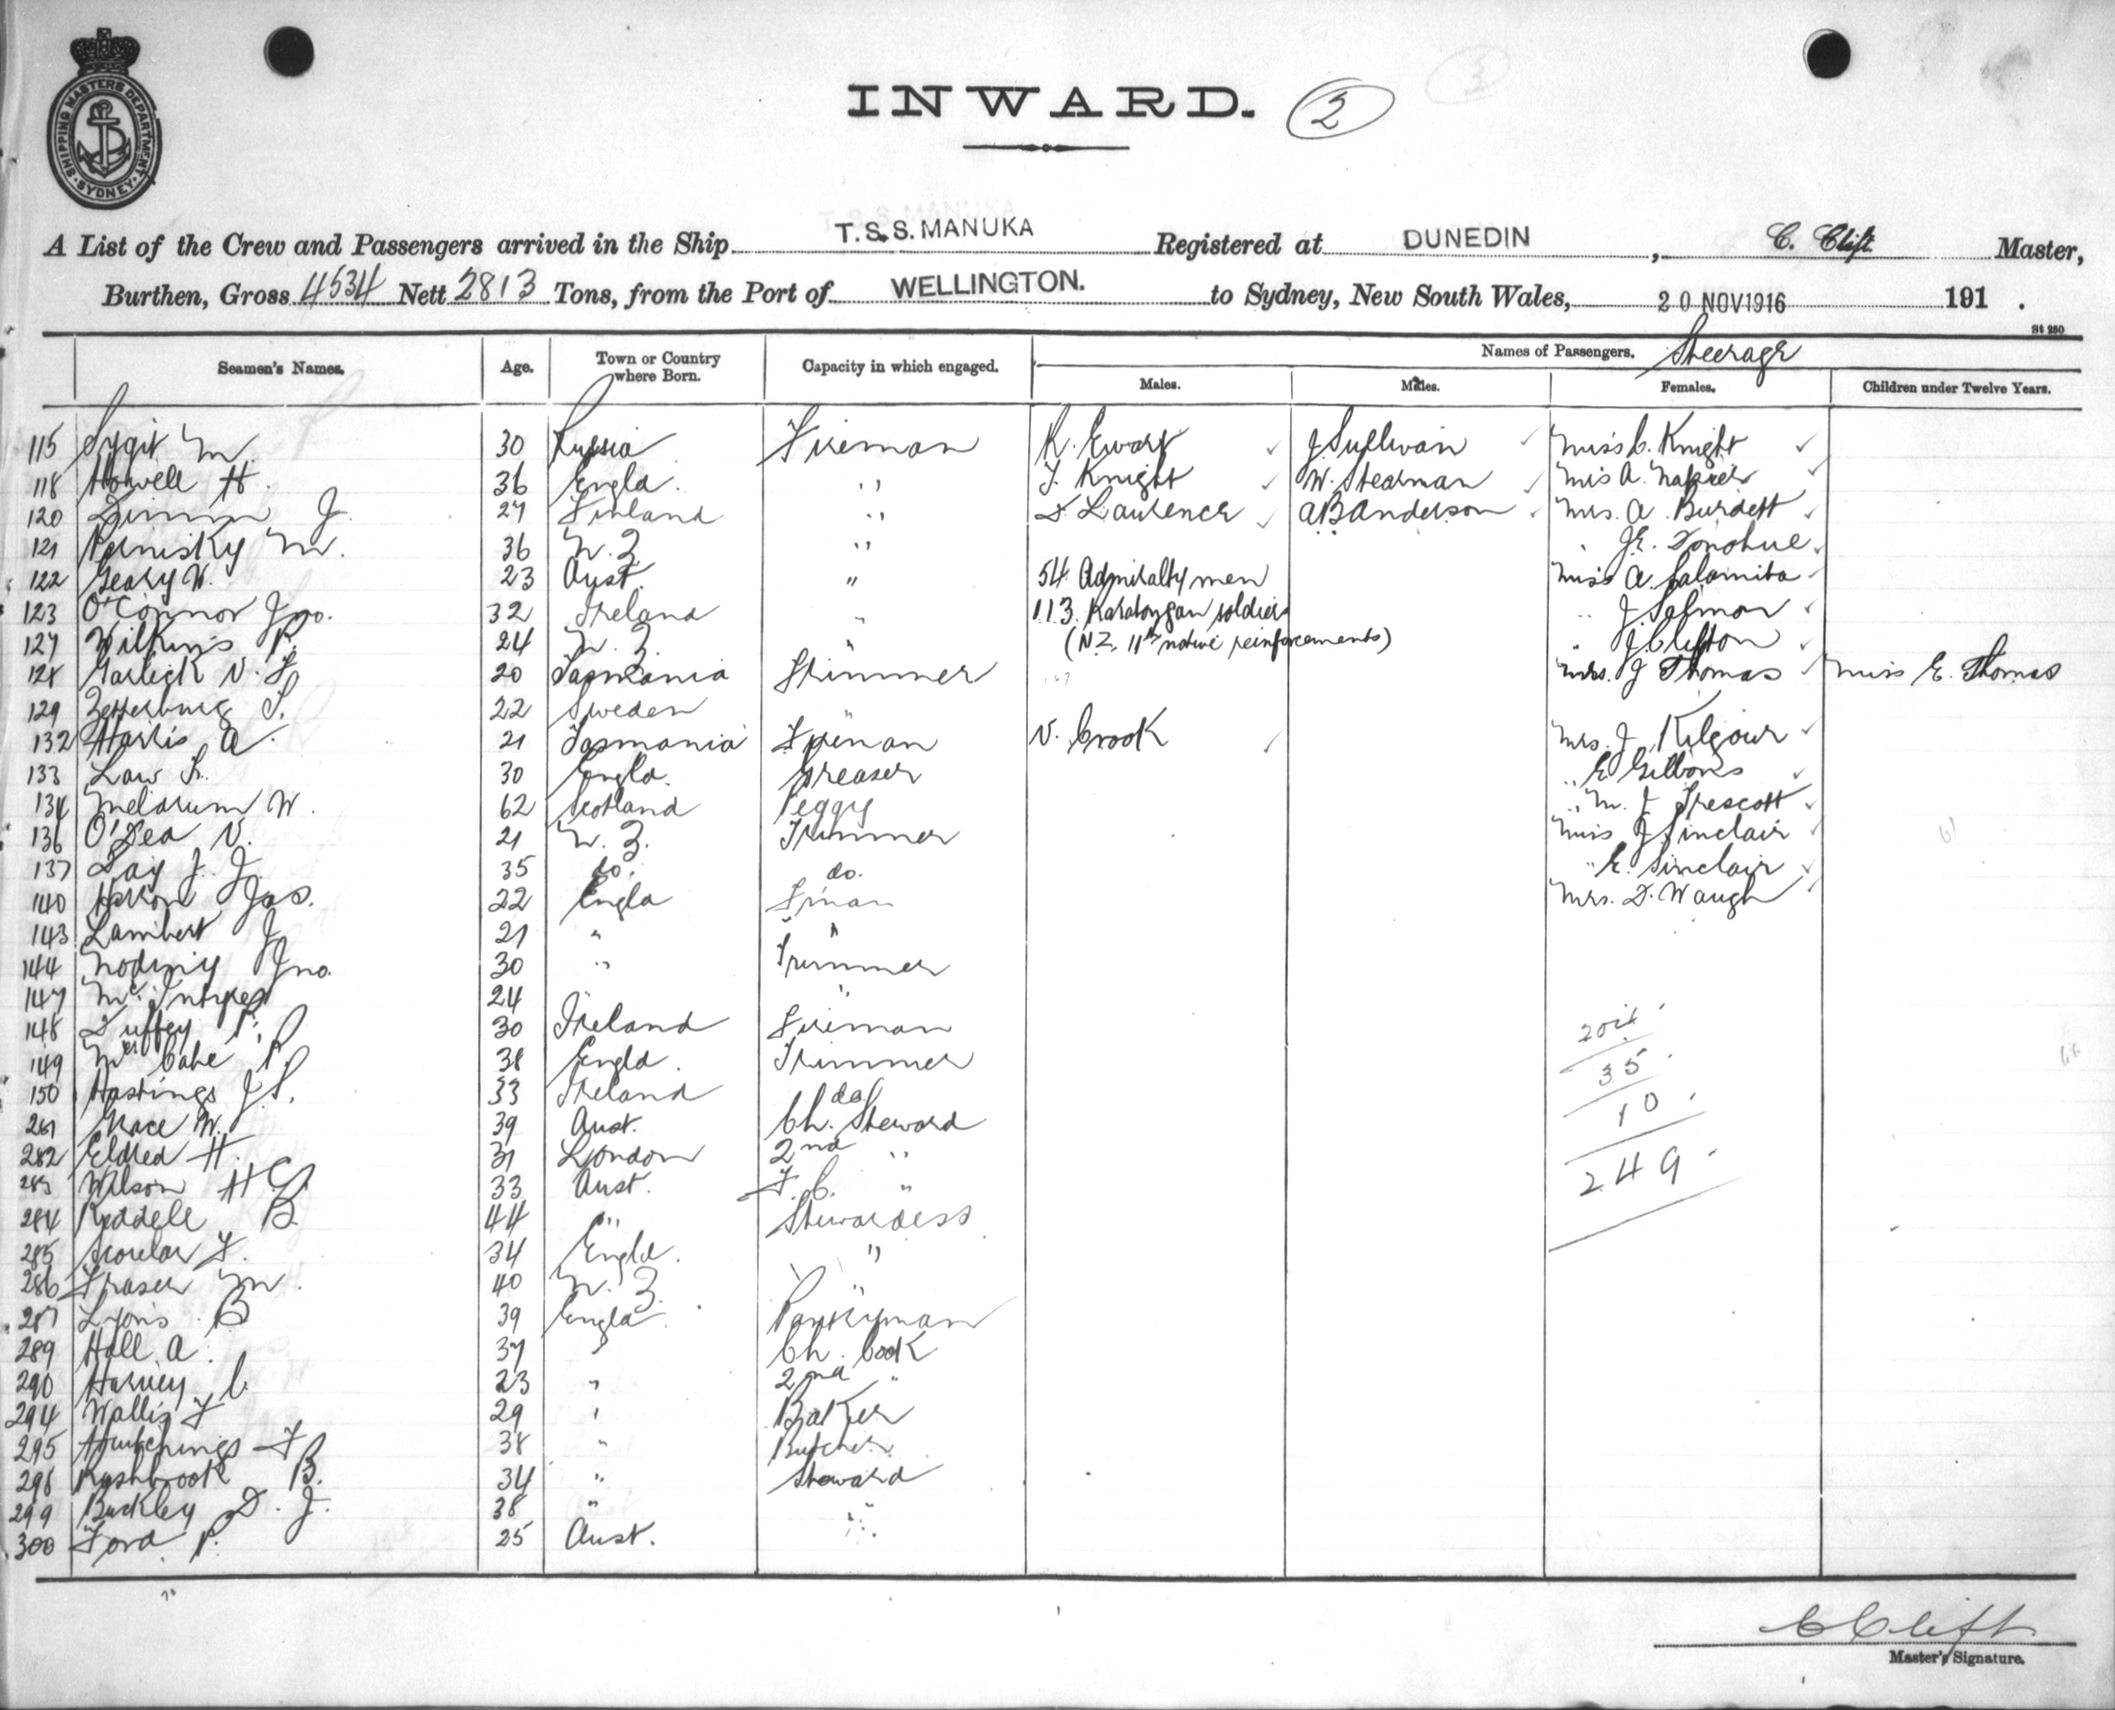 SHIPPING MASTERS DEPARTMENT
SYDNEY
INWARD. 2
A List of the Crew and Passengers arrived in the Ship T.S.S. MANUKA Registered at DUNEDIN, C. Clift Master,
Burthen, Gross 4534 Nett 2813 Tons, from the Port of WELLINGTON. to Sydney, New South Wales, 20 NOV 1916 191 .
St 280
Seamen's Names. Age. Town or Country where Born. Capacity in which engaged. Names of Passengers. Steerage
Males. Males. Females. Children under Twelve Years.
115 Sygit M. 30 Russia Fireman R. Ewart J Sullivan Miss C. Knight
118 Howell H. 36 Engld. " J. Knight W. Stearman Mrs A. Napier
120 J. 27 Finland " D Laurence A B Anderson Mrs. A. Burdett
121 M. 36 N.Z. " " J E. Donohue
122 Geary W. 23 Aust. " 54 Admiralty men Miss A. Salamita
123 O'Connor Jno. 32 Ireland " 113. Raratongan soldiers " J Salmon
127 Wilkins P. 24 N.Z. " (N.Z. 11th native reinforcements) " J Clifton
128 Garlick V. F. 20 Tasmania Trimmer Mrs. J Thomas Miss E. Thomas
129 Zetterburg S. 22 Sweden "
132 Harris A. 21 Tasmania Fireman V. Crook Mrs. J Kilgour
133 Law 30 Engld. Greaser " E Gibbons
134 Meldrum W. 62 Scotland Peggy " M. J Trescott
136 O'Dea V. 21 N.Z. Trimmer Miss J Sinclair
137 Day J. J. 35 do. do. " E. Sinclair
140 Herron Jas. 22 Engld F'man Mrs. D. Waugh
143 Lambert J 21 " "
144 Jno. 30 " Trimmer
147 McIntyre 24 " "
148 Duffey P. 30 Ireland Fireman 204
149 McCabe P. 38 Engld. Trimmer 35
150 Hastings J. S. 33 Ireland do. 10
261 Grace W. 39 Aust. Ch. Steward 249
282 Eldred H. 31 London 2nd "
283 Wilson H C. 33 Aust. F. C. "
284 Riddell B 44 " Stewardess
285 Scoular J. 34 Engld. "
286 Fraser M. 40 N.Z. "
287 Lyons B 39 Engld. Pantryman
289 Hall A. 37 " Ch. Cook
290 Harvey C. 23 " 2nd "
294 Wallis F 29 " Baker
295 Hutchings F 38 " Butcher
296 Rushbrook B. 34 " Steward
299 Buckley D. J. 38 " "
300 Ford P. 25 Aust. "
C Clift
Master's Signature.